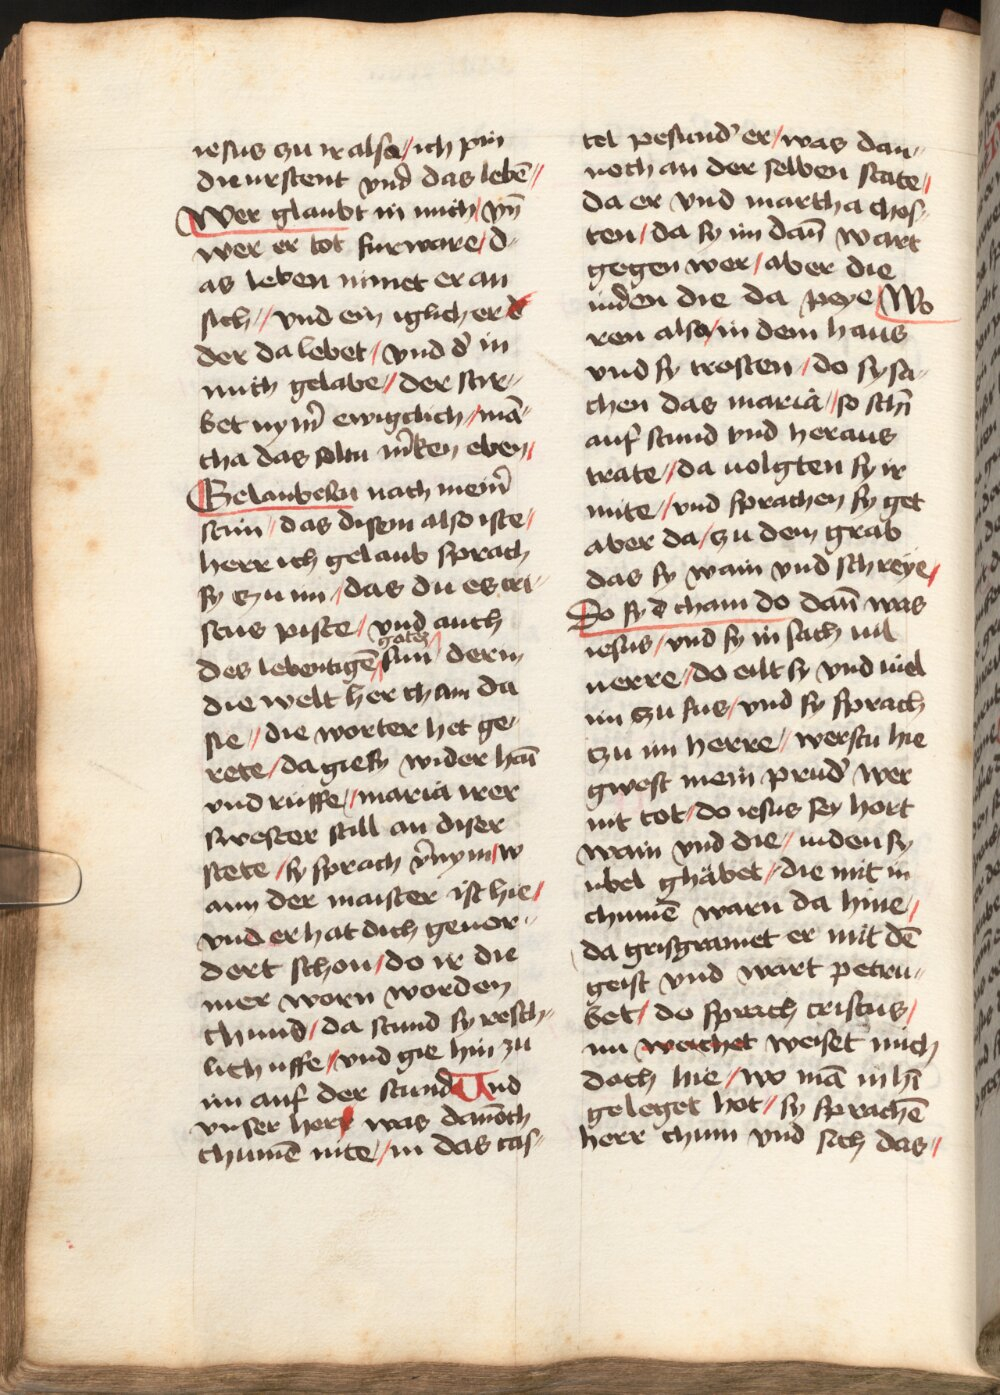 iesus zu ir also / ich pin
die urstent vnd̛ das lebē //
Wer glaubt in mich / vn̄
wer er tot furware / d-
as leben nimet er an
sich // vnd ein iglicher
der da lebet / vnd d̛ in
mich gelabe // der stir-
bet nym̄ ewigclich / mā-
tha das soltu m̄ken eben /
Gelaubestu nach mein̄
stim / das disem also iste /
herr ich gelaub sprach
sy zu im / das du es cri-
stus piste / vnd auch
des lebentigē gotez sun der in
die welt her cham da
sie // die worter het ge-
rete / da gie sy wider haī
vnd ruffe // maria irer
swester still an diser
stete / sy sprach v̄nym / w
ann der maister ist hie /
vnd er hat dich geuor-
dert schon / do ir die
mer worn worden
chund / da stund sy resch-
lich uffe // vnd gie hin zu
im auf der stund Und
vnser herr was dan̄och
chumē nite // in das cas-
tel pesund̛ er / was dan-
noch an der selben state /
da er vnd martha chos-
ten / da sy im dan̄ wart
gegen wer / aber die
iuden die da peye Wo
ren also / in dem haus
vnd sy trosten / do sy sa-
chen das maria // so schn̄
auf stund vnd heraus
trate // da uolgten sy ir
mite // vnd sprachen sy get
aber da / zu dem grab
das sy wain vnd schreye /
Do sy d cham do dan̄ was
iesus / vnd sy in sach uil
uerre / do eilt sy vnd uiel
im zu fus / vnd sy sprach
tzu im herre // werstu hie
gwest mein prud̛ wer
nit tot / do iesus sey hort
wain vnd die / iuden sy
ubel ghåbet // die mit in
chumē warn da hine /
da grisgramet er mit dē
geist vnd wart petru-
bet / do sprach cristus /
nu weichet weiset mich
doch hie / wo mā in hī
geleget hot // sy sprachē
herr chum vnd sich das //